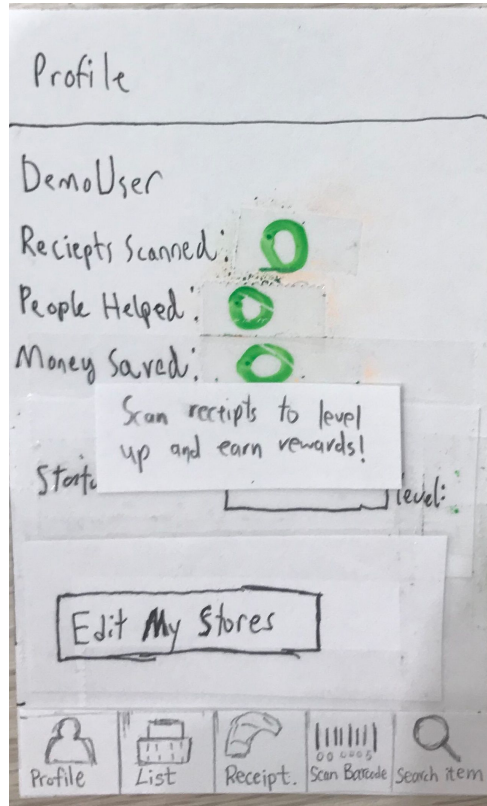 Profile
DemoUser
Reciepts Scanned: 0
People Helped: 0
Money Saved: 0
Scan rectipts to level
up and earn rewards!
level:
Edit My Stores
Profile
List
Receipt.
Scan Barcode
Search item